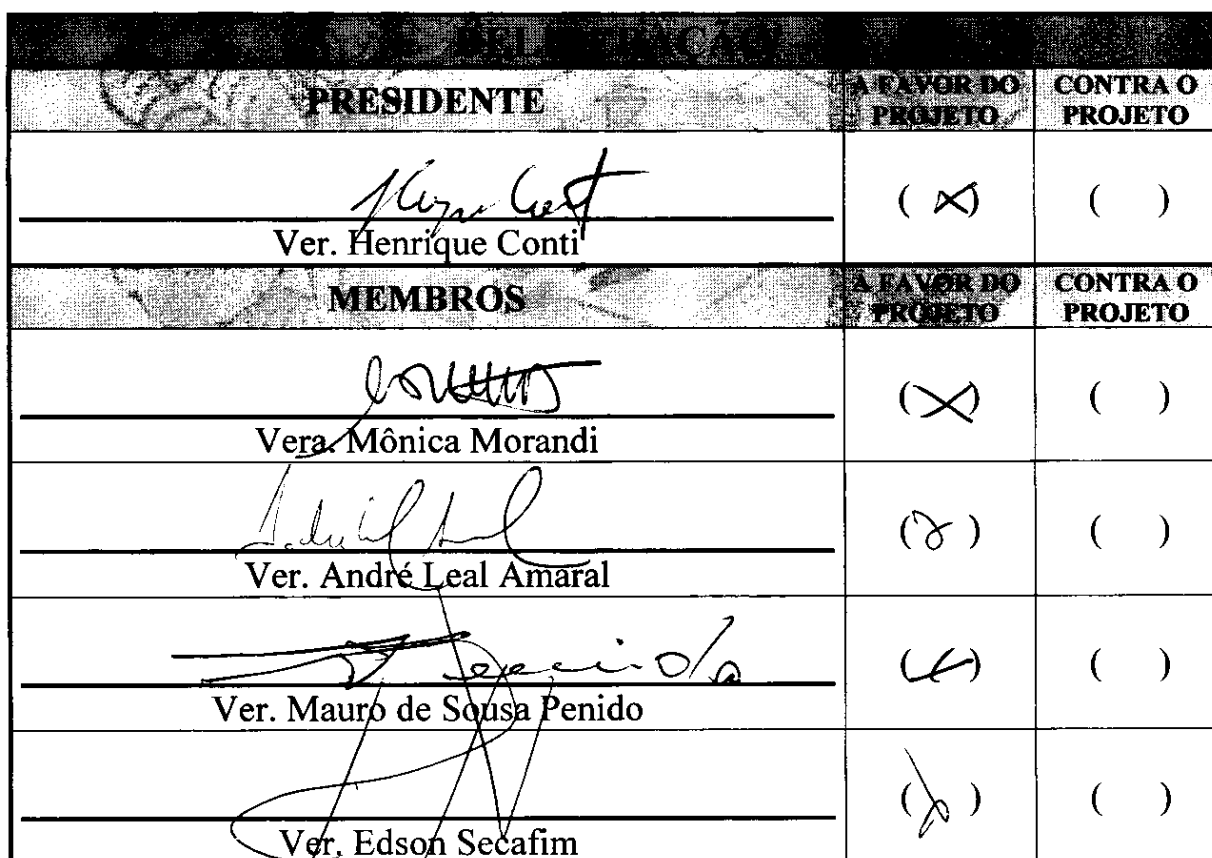 DELIBERAÇÃO
PRESIDENTE
A FAVOR DO
PROJETO
CONTRA O
PROJETO
( X ) ( )
Ver. Henrique Conti
MEMBROS
A FAVOR DO
PROJETO
CONTRA O
PROJETO
(X) ( )
Vera. Mônica Morandi
( ) ( )
Ver. André Leal Amaral
( ) ( )
Ver. Mauro de Sousa Penido
( ) ( )
Ver. Edson Secafim